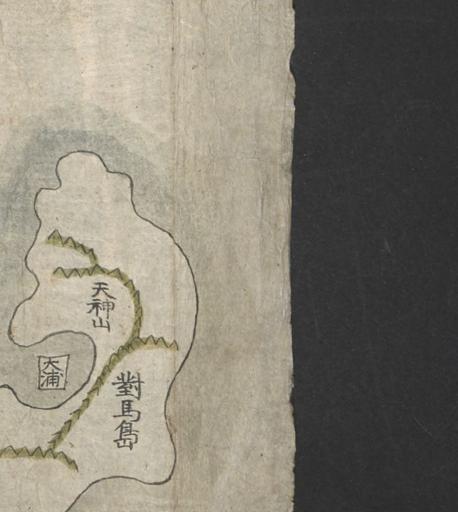 天神山
大浦
對馬島